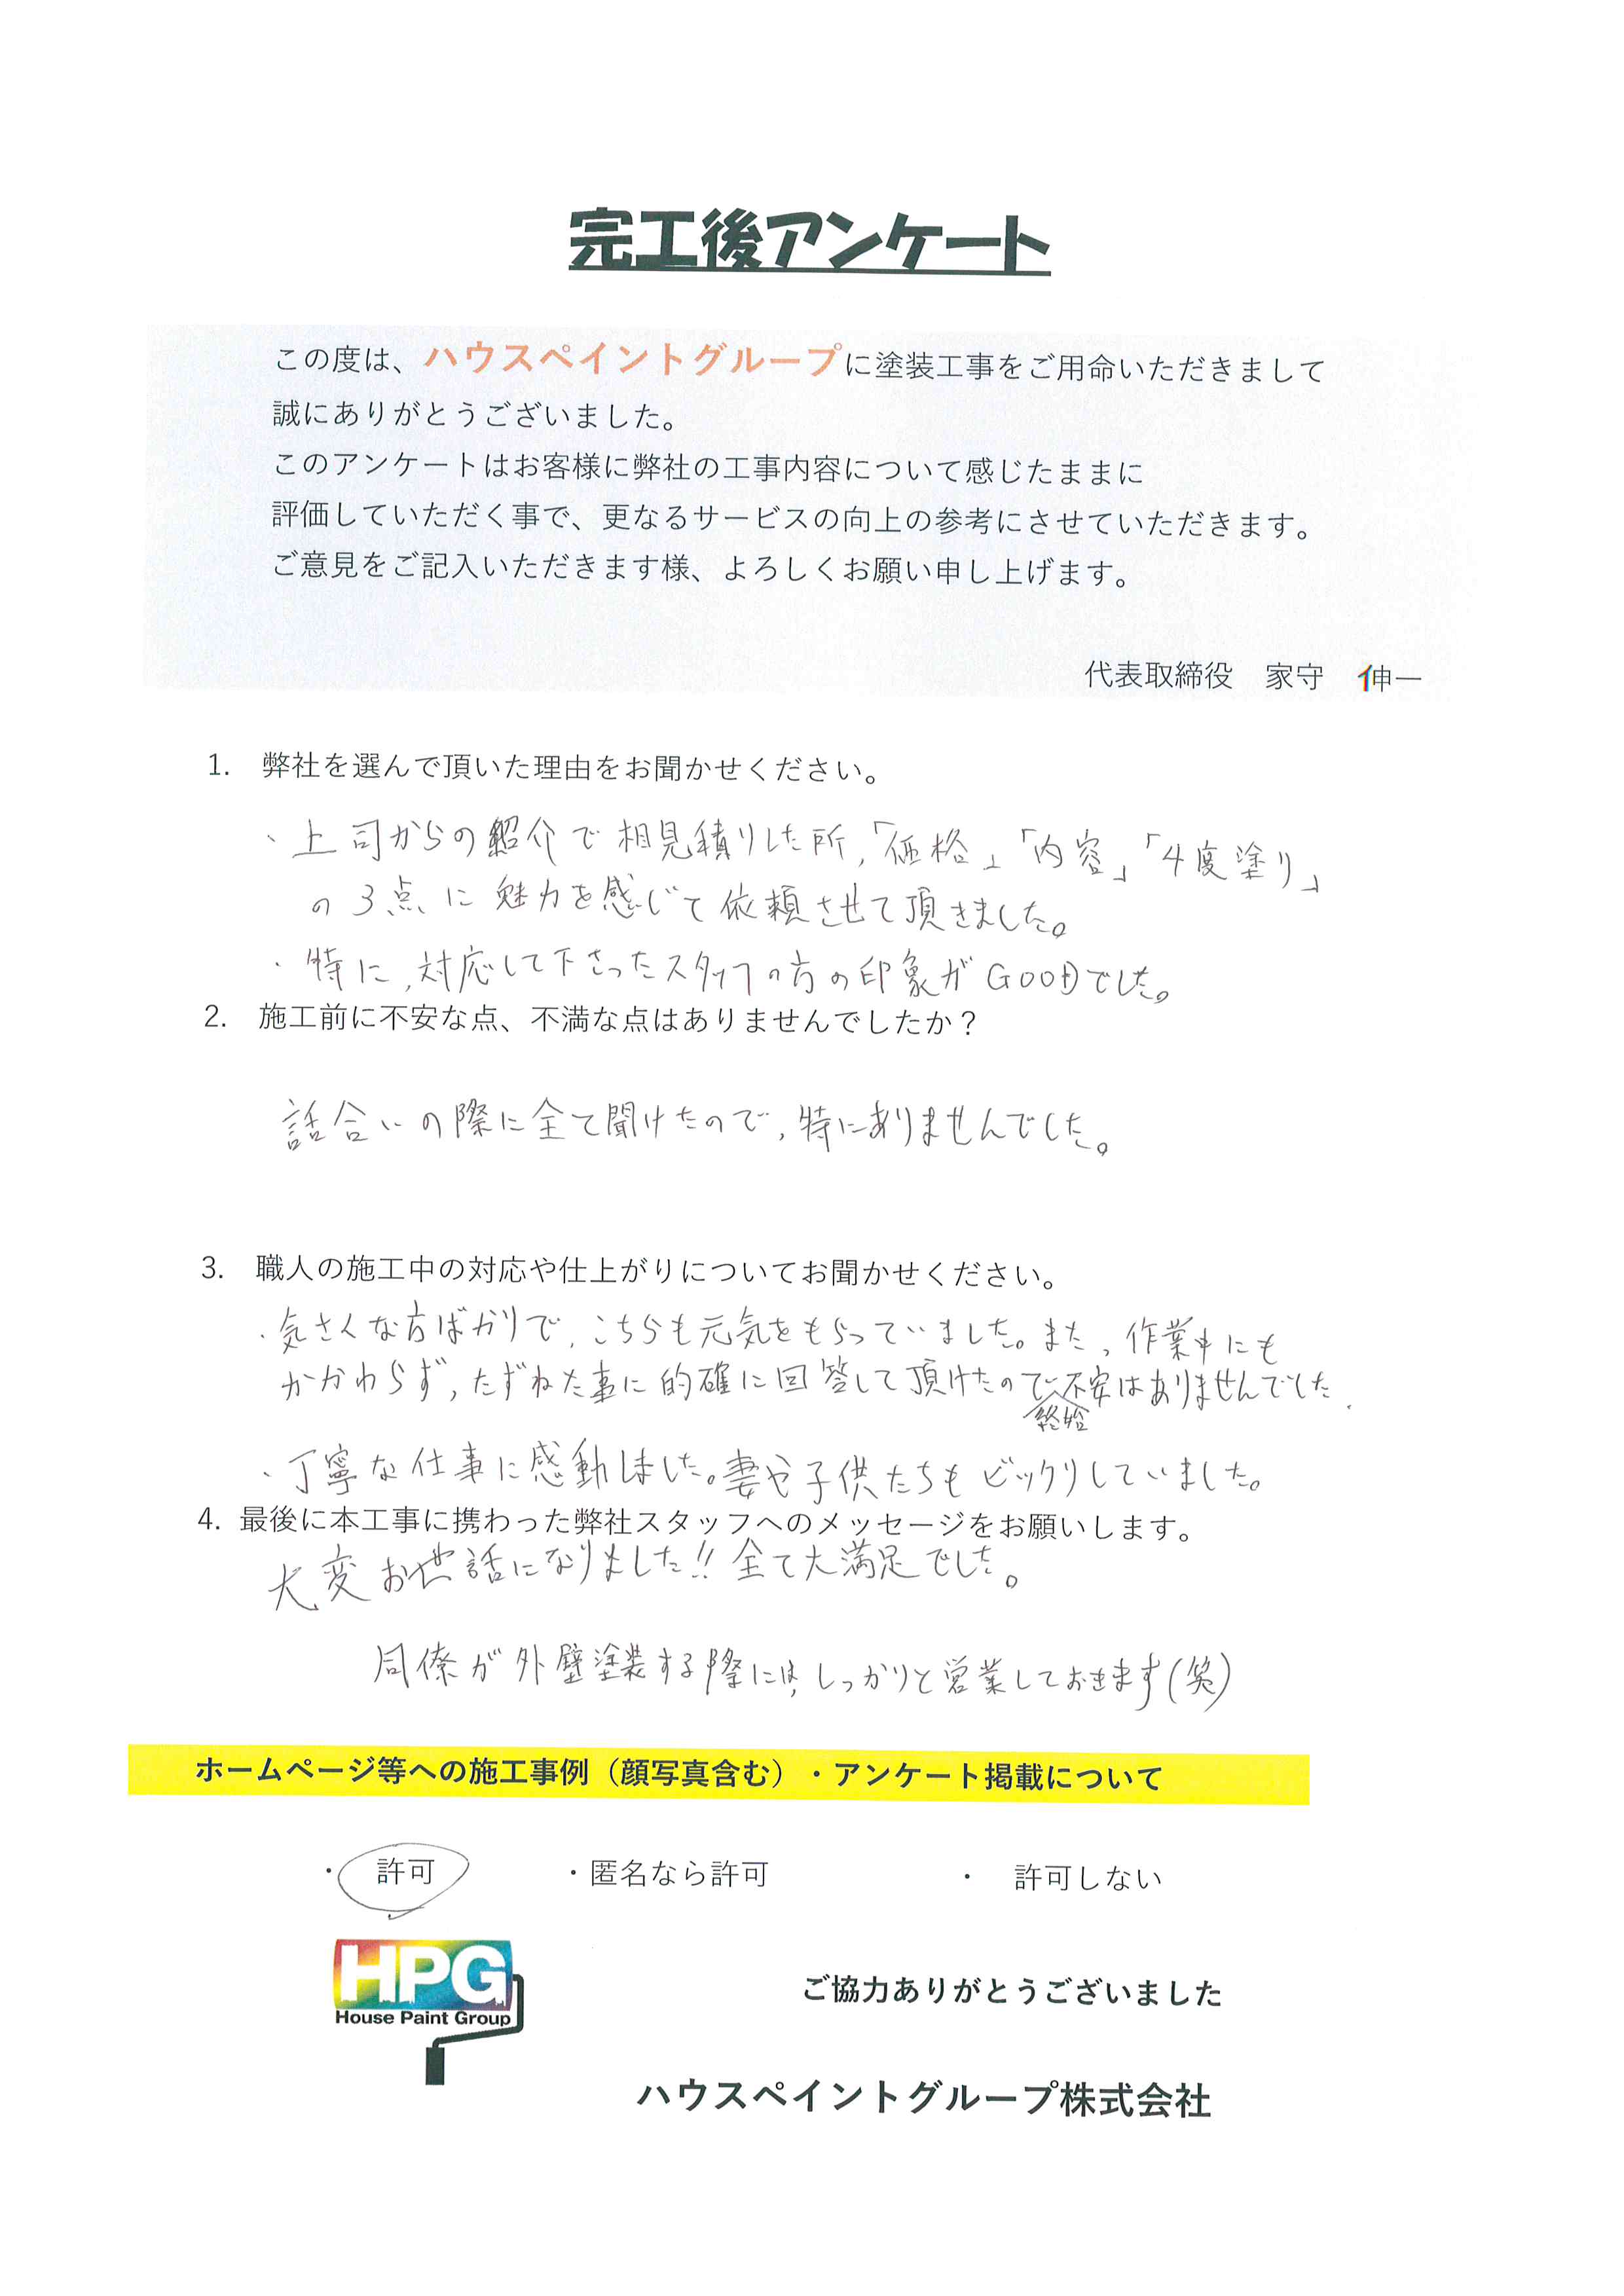 完工後アンケート
この度は、ハウスペイントグループに塗装工事をご用命いただきまして
誠にありがとうございました。
このアンケートはお客様に弊社の工事内容について感じたままに
評価していただく事で、更なるサービスの向上の参考にさせていただきます。
ご意見をご記入いただきます様、よろしくお願い申し上げます。
代表取締役 家守 伸一
1. 弊社を選んで頂いた理由をお聞かせください。
・上司からの紹介で相見積りした所,「価格」「内容」「4度塗り」
の3点に魅力を感じて依頼させて頂きました。
・特に,対応して下さったスタッフの方の印象がGOODでした。
2. 施工前に不安な点、不満な点はありませんでしたか?
話合いの際に全て聞けたので,特にありませんでした。
3. 職人の施工中の対応や仕上がりについてお聞かせください。
・気さくな方ばかりで,こちらも元気をもらっていました。また、作業中にも
かかわらず,たずねた事に的確に回答して頂けたので不安はありませんでした.
終始
・丁寧な仕事に感動しました。妻や子供たちもビックリしていました。
4. 最後に本工事に携わった弊社スタッフへのメッセージをお願いします。
大変お世話になりました!!全て大満足でした。
同僚が外壁塗装する際には,しっかりと営業しておきます(笑)
ホームページ等への施工事例（顔写真含む）・アンケート掲載について
・ 許可 ・匿名なら許可 ・ 許可しない
HPG
House Paint Group
ご協力ありがとうございました
ハウスペイントグループ株式会社